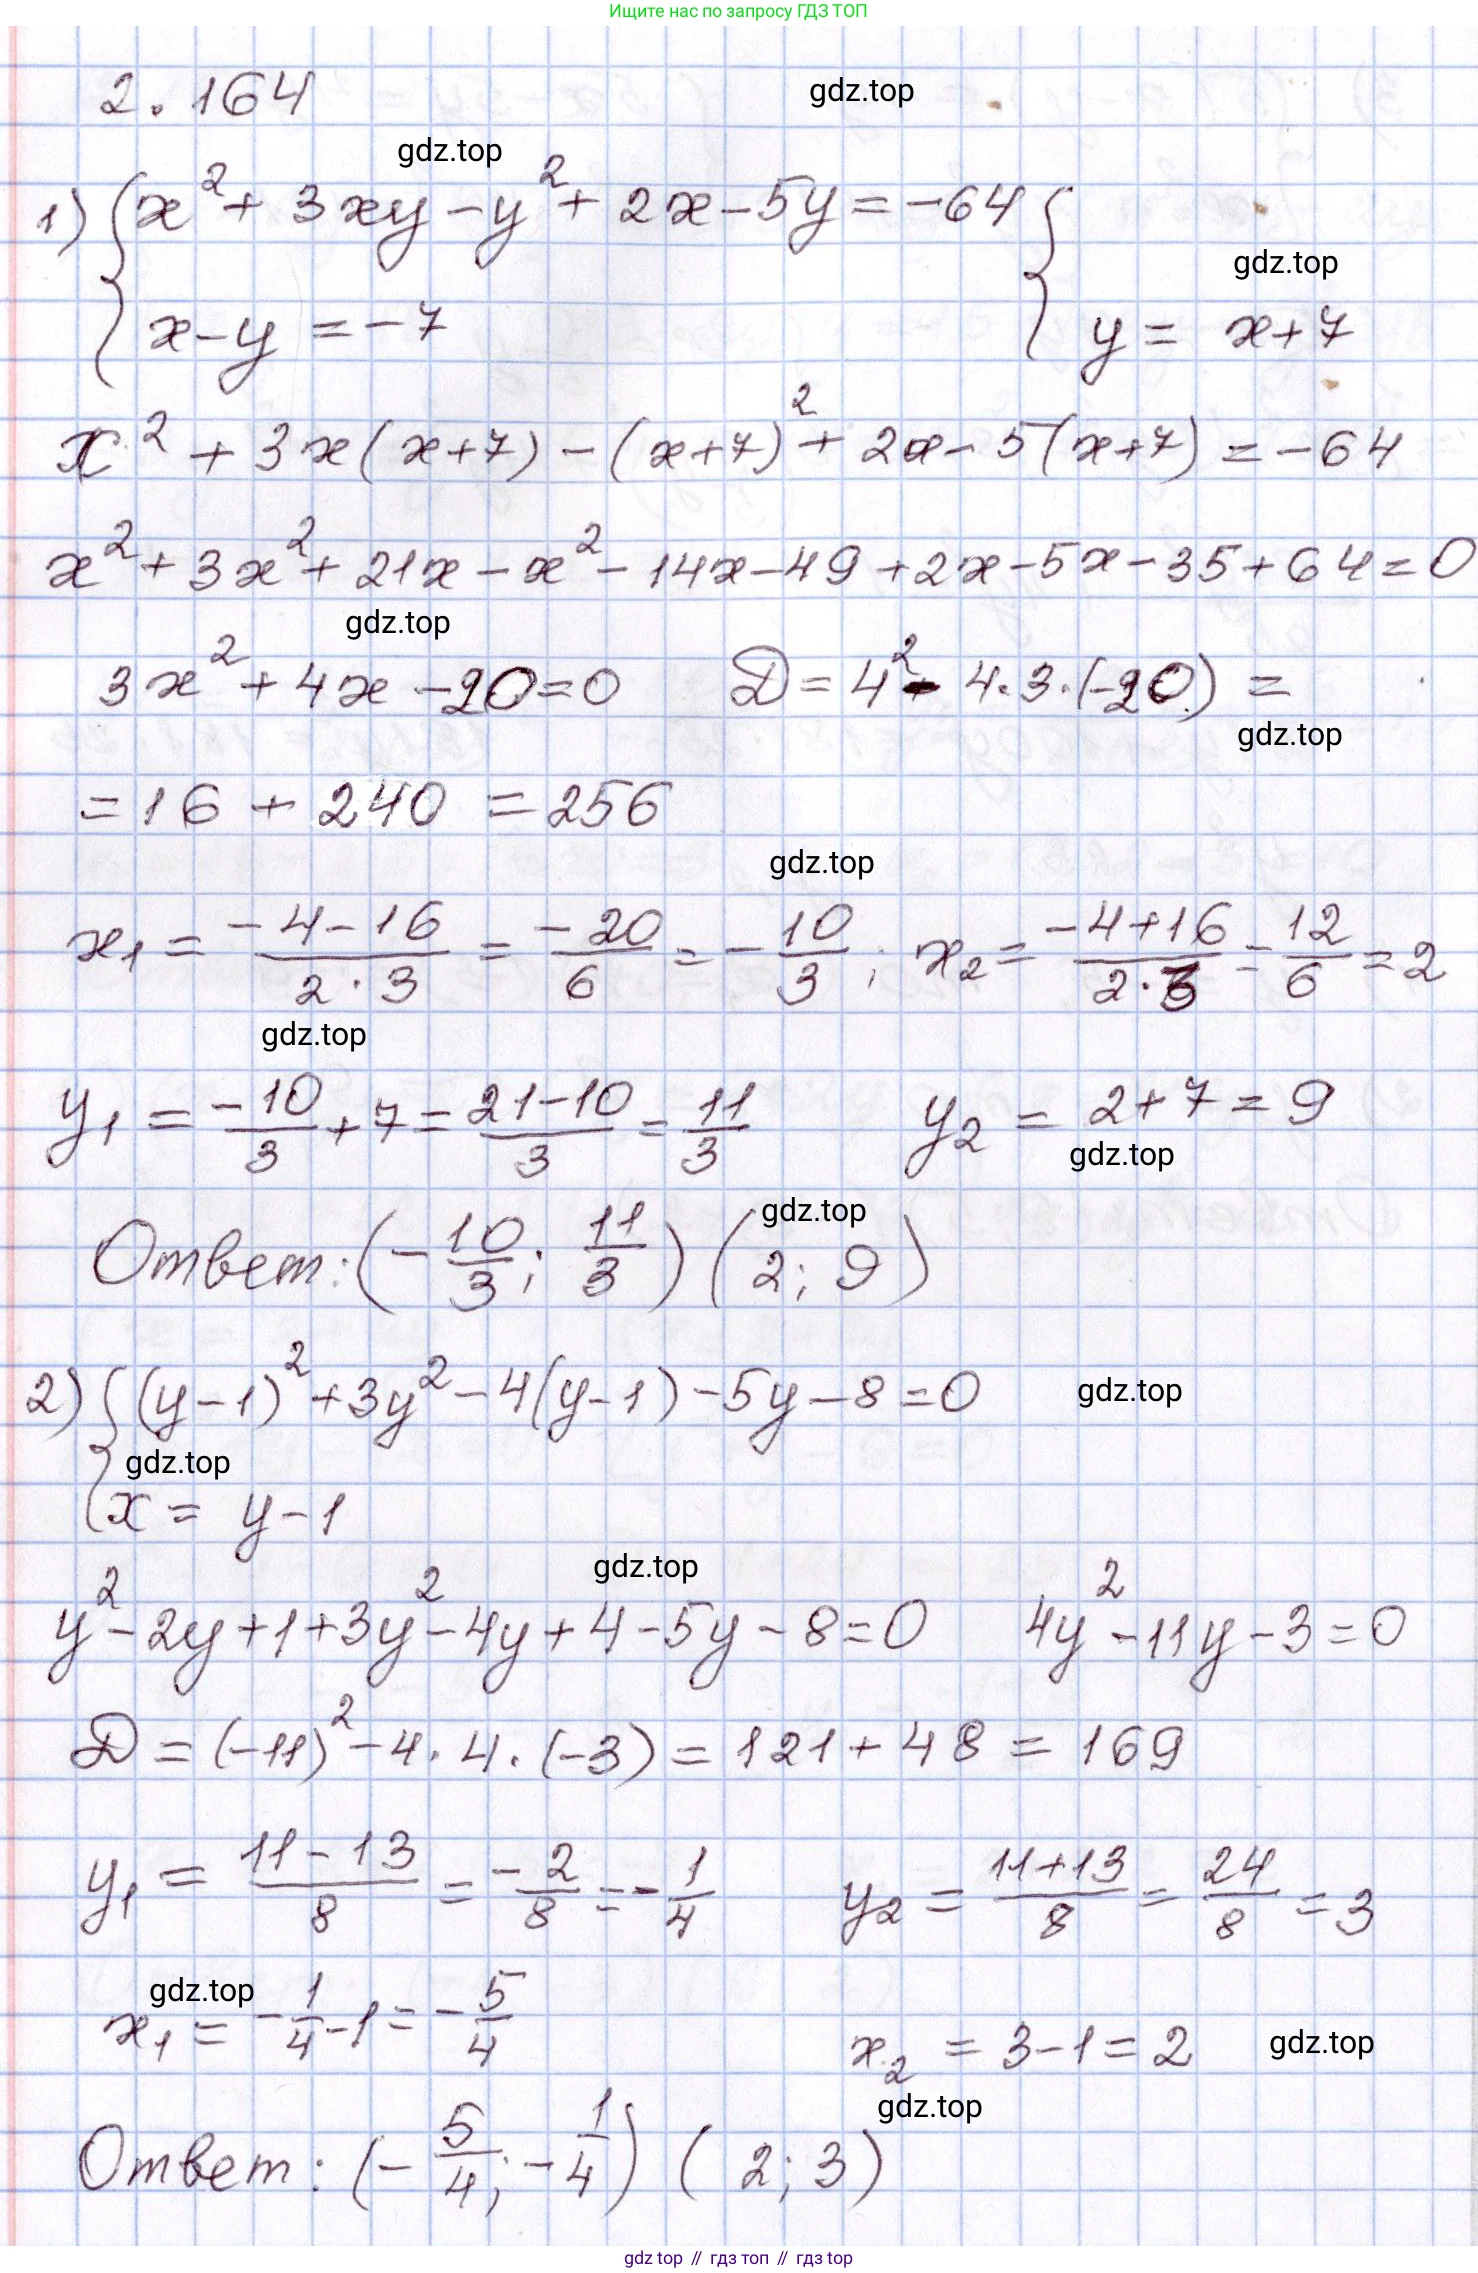 Ищите нас по запросу ГДЗ ТОП
2.164
gdz.top
gdz.top
1) { x² + 3xy - y² + 2x - 5y = -64 {
gdz.top
x - y = -7 y = x + 7
x² + 3x(x+7) - (x+7)² + 2x - 5(x+7) = -64
x² + 3x² + 21x - x² - 14x - 49 + 2x - 5x - 35 + 64 = 0
gdz.top
3x² + 4x - 20 = 0 D = 4² - 4·3·(-20) =
gdz.top
= 16 + 240 = 256
gdz.top
x₁ = (-4-16)/(2·3) = -20/6 = -10/3; x₂ = (-4+16)/(2·3) = 12/6 = 2
gdz.top
y₁ = -10/3 + 7 = (21-10)/3 = 11/3 y₂ = 2 + 7 = 9
gdz.top
gdz.top
Ответ: (-10/3; 11/3) (2; 9)
2) { (y-1)² + 3y² - 4(y-1) - 5y - 8 = 0
gdz.top
gdz.top
x = y - 1
gdz.top
y² - 2y + 1 + 3y² - 4y + 4 - 5y - 8 = 0 4y² - 11y - 3 = 0
D = (-11)² - 4·4·(-3) = 121 + 48 = 169
y₁ = (11-13)/8 = -2/8 = -1/4 y₂ = (11+13)/8 = 24/8 = 3
gdz.top
x₁ = -1/4 - 1 = -5/4 x₂ = 3 - 1 = 2
gdz.top
gdz.top
Ответ: (-5/4; -1/4) (2; 3)
gdz top // гдз топ // gdz top